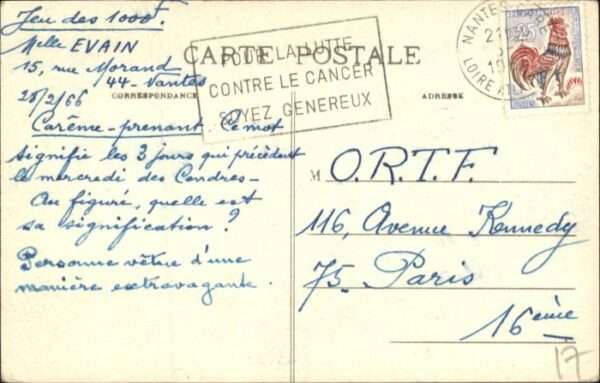 Jeu des 1000F.
Melle EVAIN
15, rue Morand
44 - Nantes
28/2/66
CARTE POSTALE
CORRESPONDANCE
ADRESSE
POUR LA LUTTE
CONTRE LE CANCER
SOYEZ GENEREUX
NANTES
21
LOIRE
Carême-prenant. Ce mot
signifie les 3 jours qui précèdent
le mercredi des Cendres -
Au figuré, quelle est
sa signification ?
Personne vêtue d'une
manière extravagante.
M O.R.T.F.
116, Avenue Kennedy
75 Paris
16ème
17